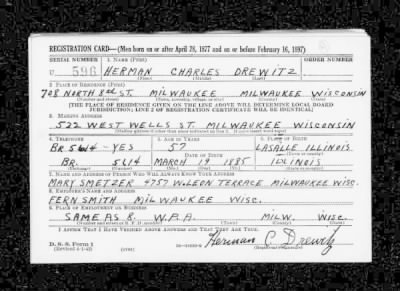 REGISTRATION CARD—(Men born on or after April 28, 1877 and on or before February 16, 1897)
SERIAL NUMBER 1. NAME (Print) ORDER NUMBER
U 596 HERMAN CHARLES DREWITZ
(First) (Middle) (Last)
2. PLACE OF RESIDENCE (Print)
708 NORTH 3RD ST. MILWAUKEE MILWAUKEE WISCONSIN
(Number and street) (Town, township, village, or city) (County) (State)
[THE PLACE OF RESIDENCE GIVEN ON THE LINE ABOVE WILL DETERMINE LOCAL BOARD
JURISDICTION; LINE 2 OF REGISTRATION CERTIFICATE WILL BE IDENTICAL]
3. MAILING ADDRESS
522 WEST WELLS ST. MILWAUKEE WISCONSIN
[Mailing address if other than place indicated on line 2. If same insert word same]
4. TELEPHONE 5. AGE IN YEARS 6. PLACE OF BIRTH
BR 5614 - YES 57 LASALLE ILLINOIS.
DATE OF BIRTH
BR. 5614 MARCH 19 1885 ILLINOIS
7. NAME AND ADDRESS OF PERSON WHO WILL ALWAYS KNOW YOUR ADDRESS
MARY SMETZER 4757 W. LEON TERRACE MILWAUKEE WISC.
8. EMPLOYER'S NAME AND ADDRESS
FERN SMITH MILWAUKEE WISC.
9. PLACE OF EMPLOYMENT OR BUSINESS
SAME AS 8. W.P.A. MILW. WISC.
(Number and street or R. F. D. number) (Town) (County) (State)
I AFFIRM THAT I HAVE VERIFIED ABOVE ANSWERS AND THAT THEY ARE TRUE.
D. S. S. Form 1
(Revised 4-1-42) (over) Herman C Drewitz